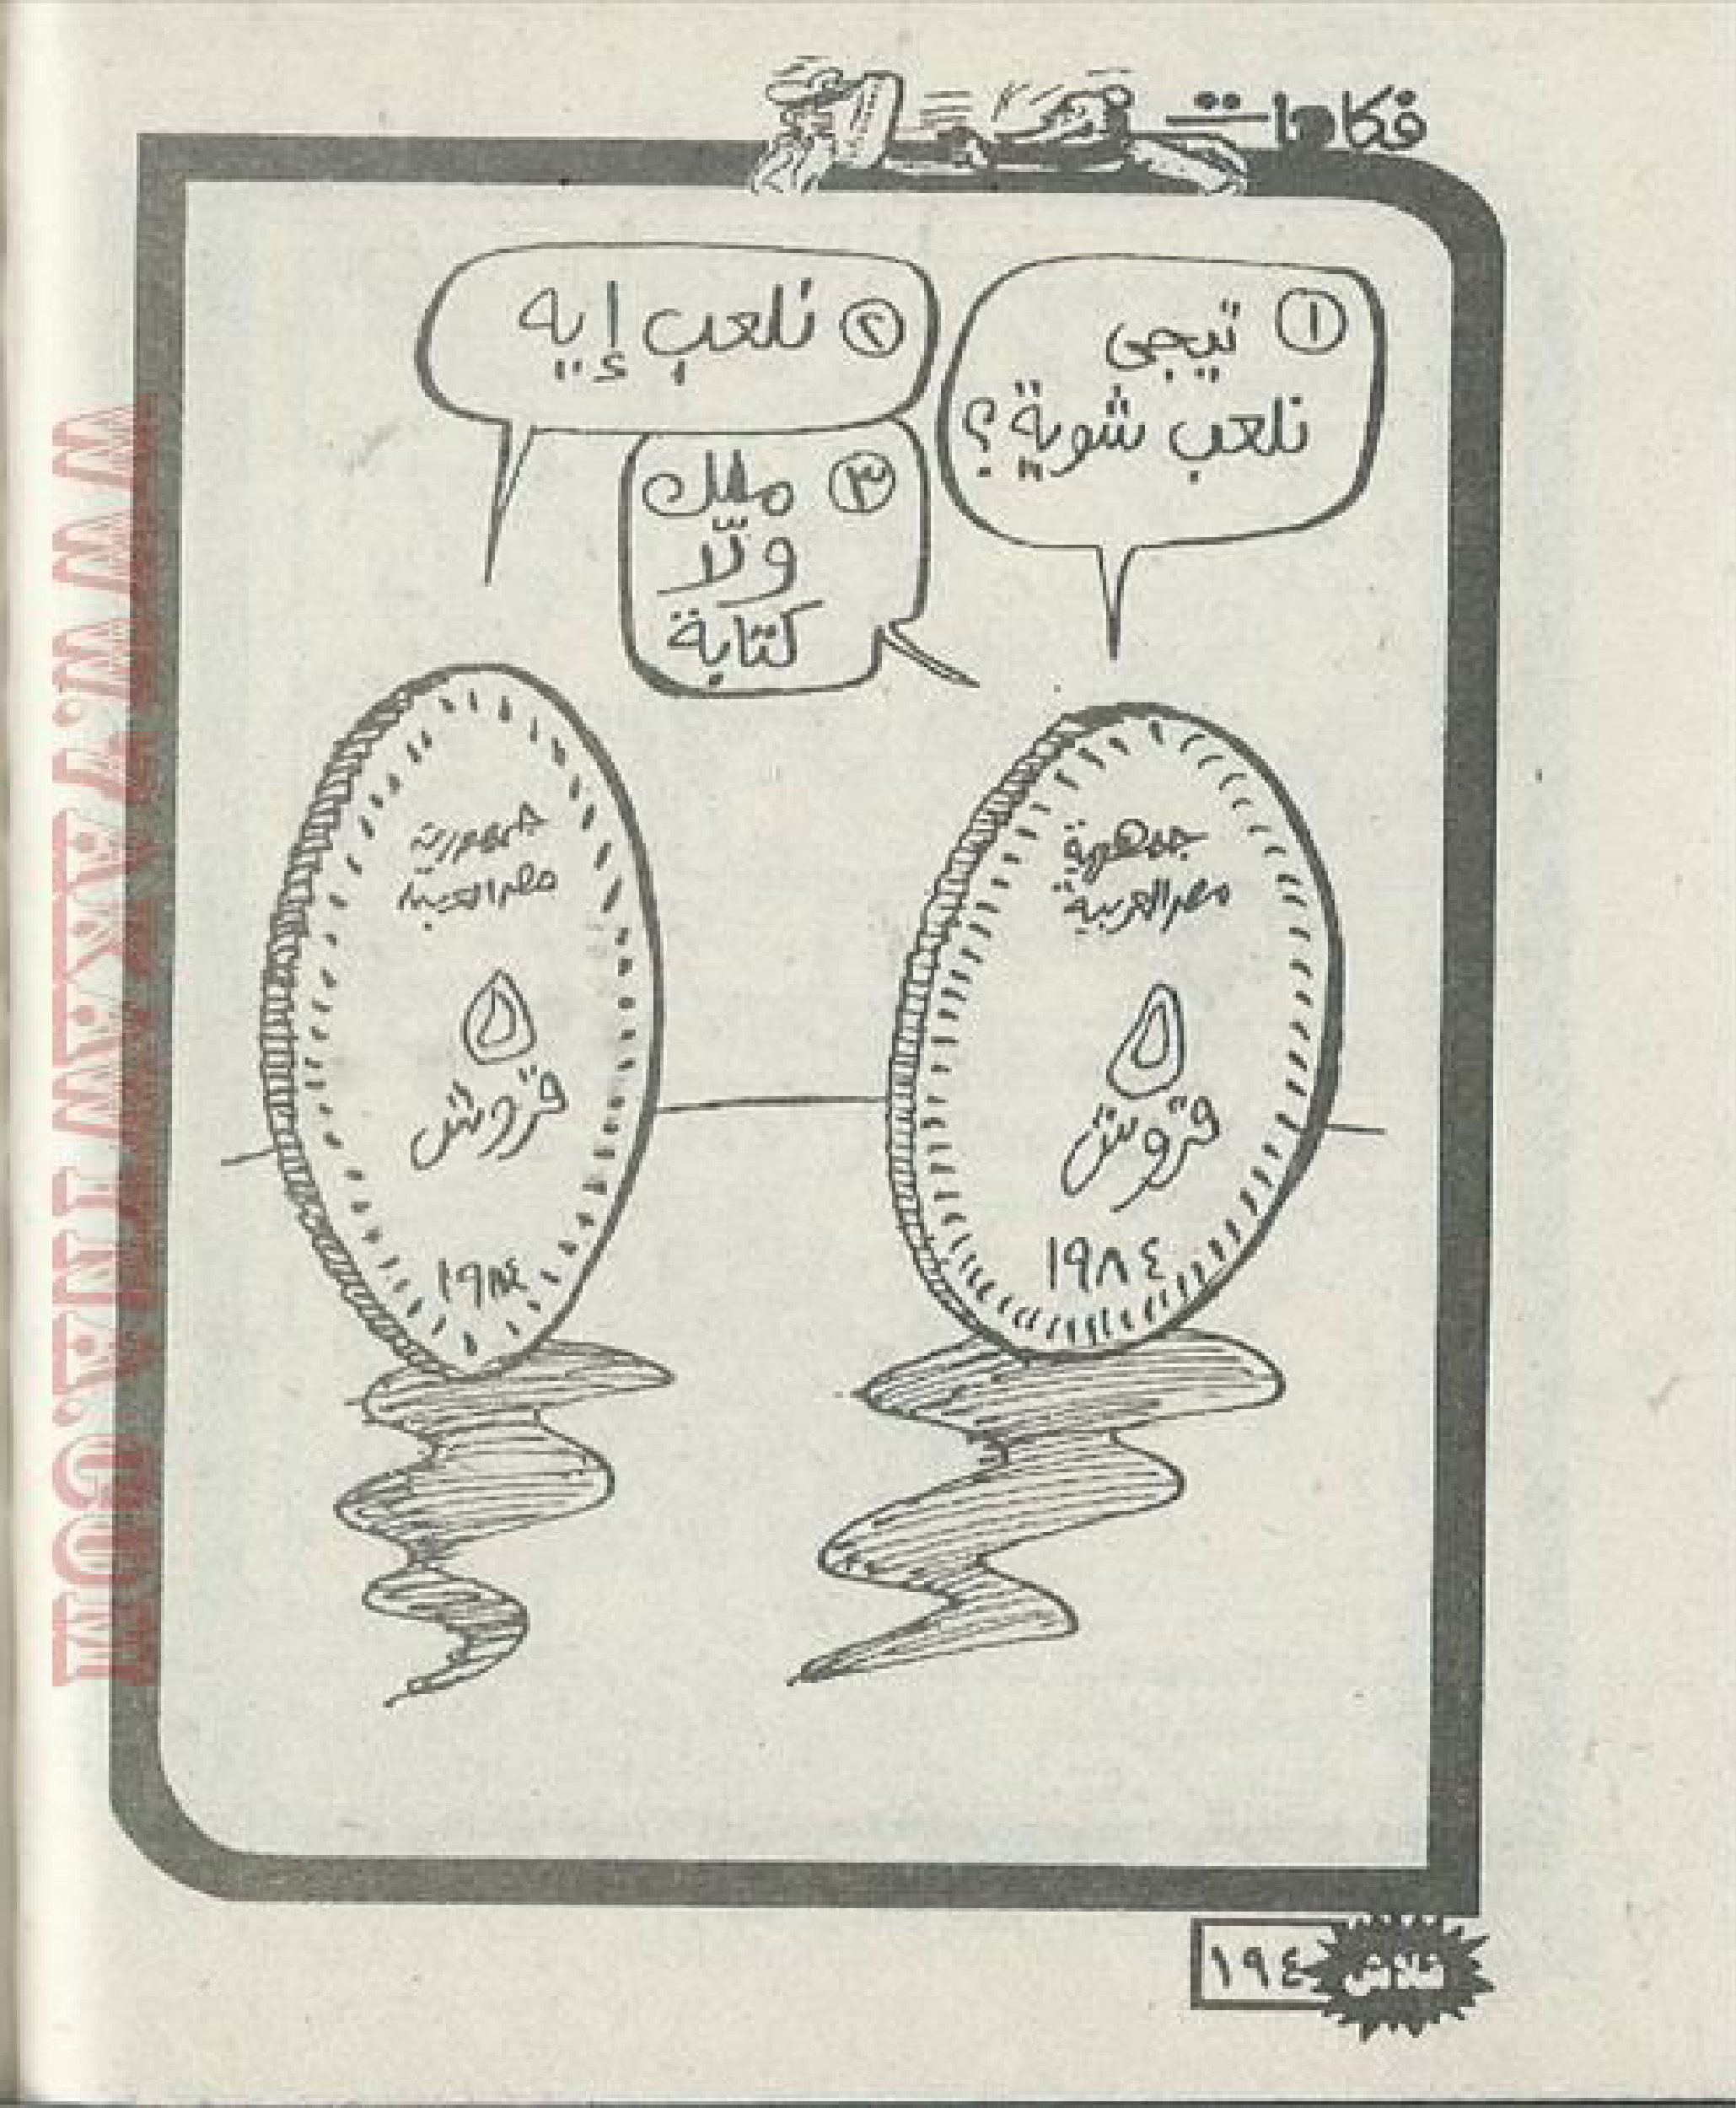 فكاهات
① تيجى
نلعب شوية؟
② نلعب إيه
③ ملك
ولّا
كتابة
جمهورية
مصر العربية
٥
قروش
١٩٨٤
جمهورية
مصر العربية
٥
قروش
١٩٨٤
فلاش ١٩٤
WWW.ARAKAWYINA.COM